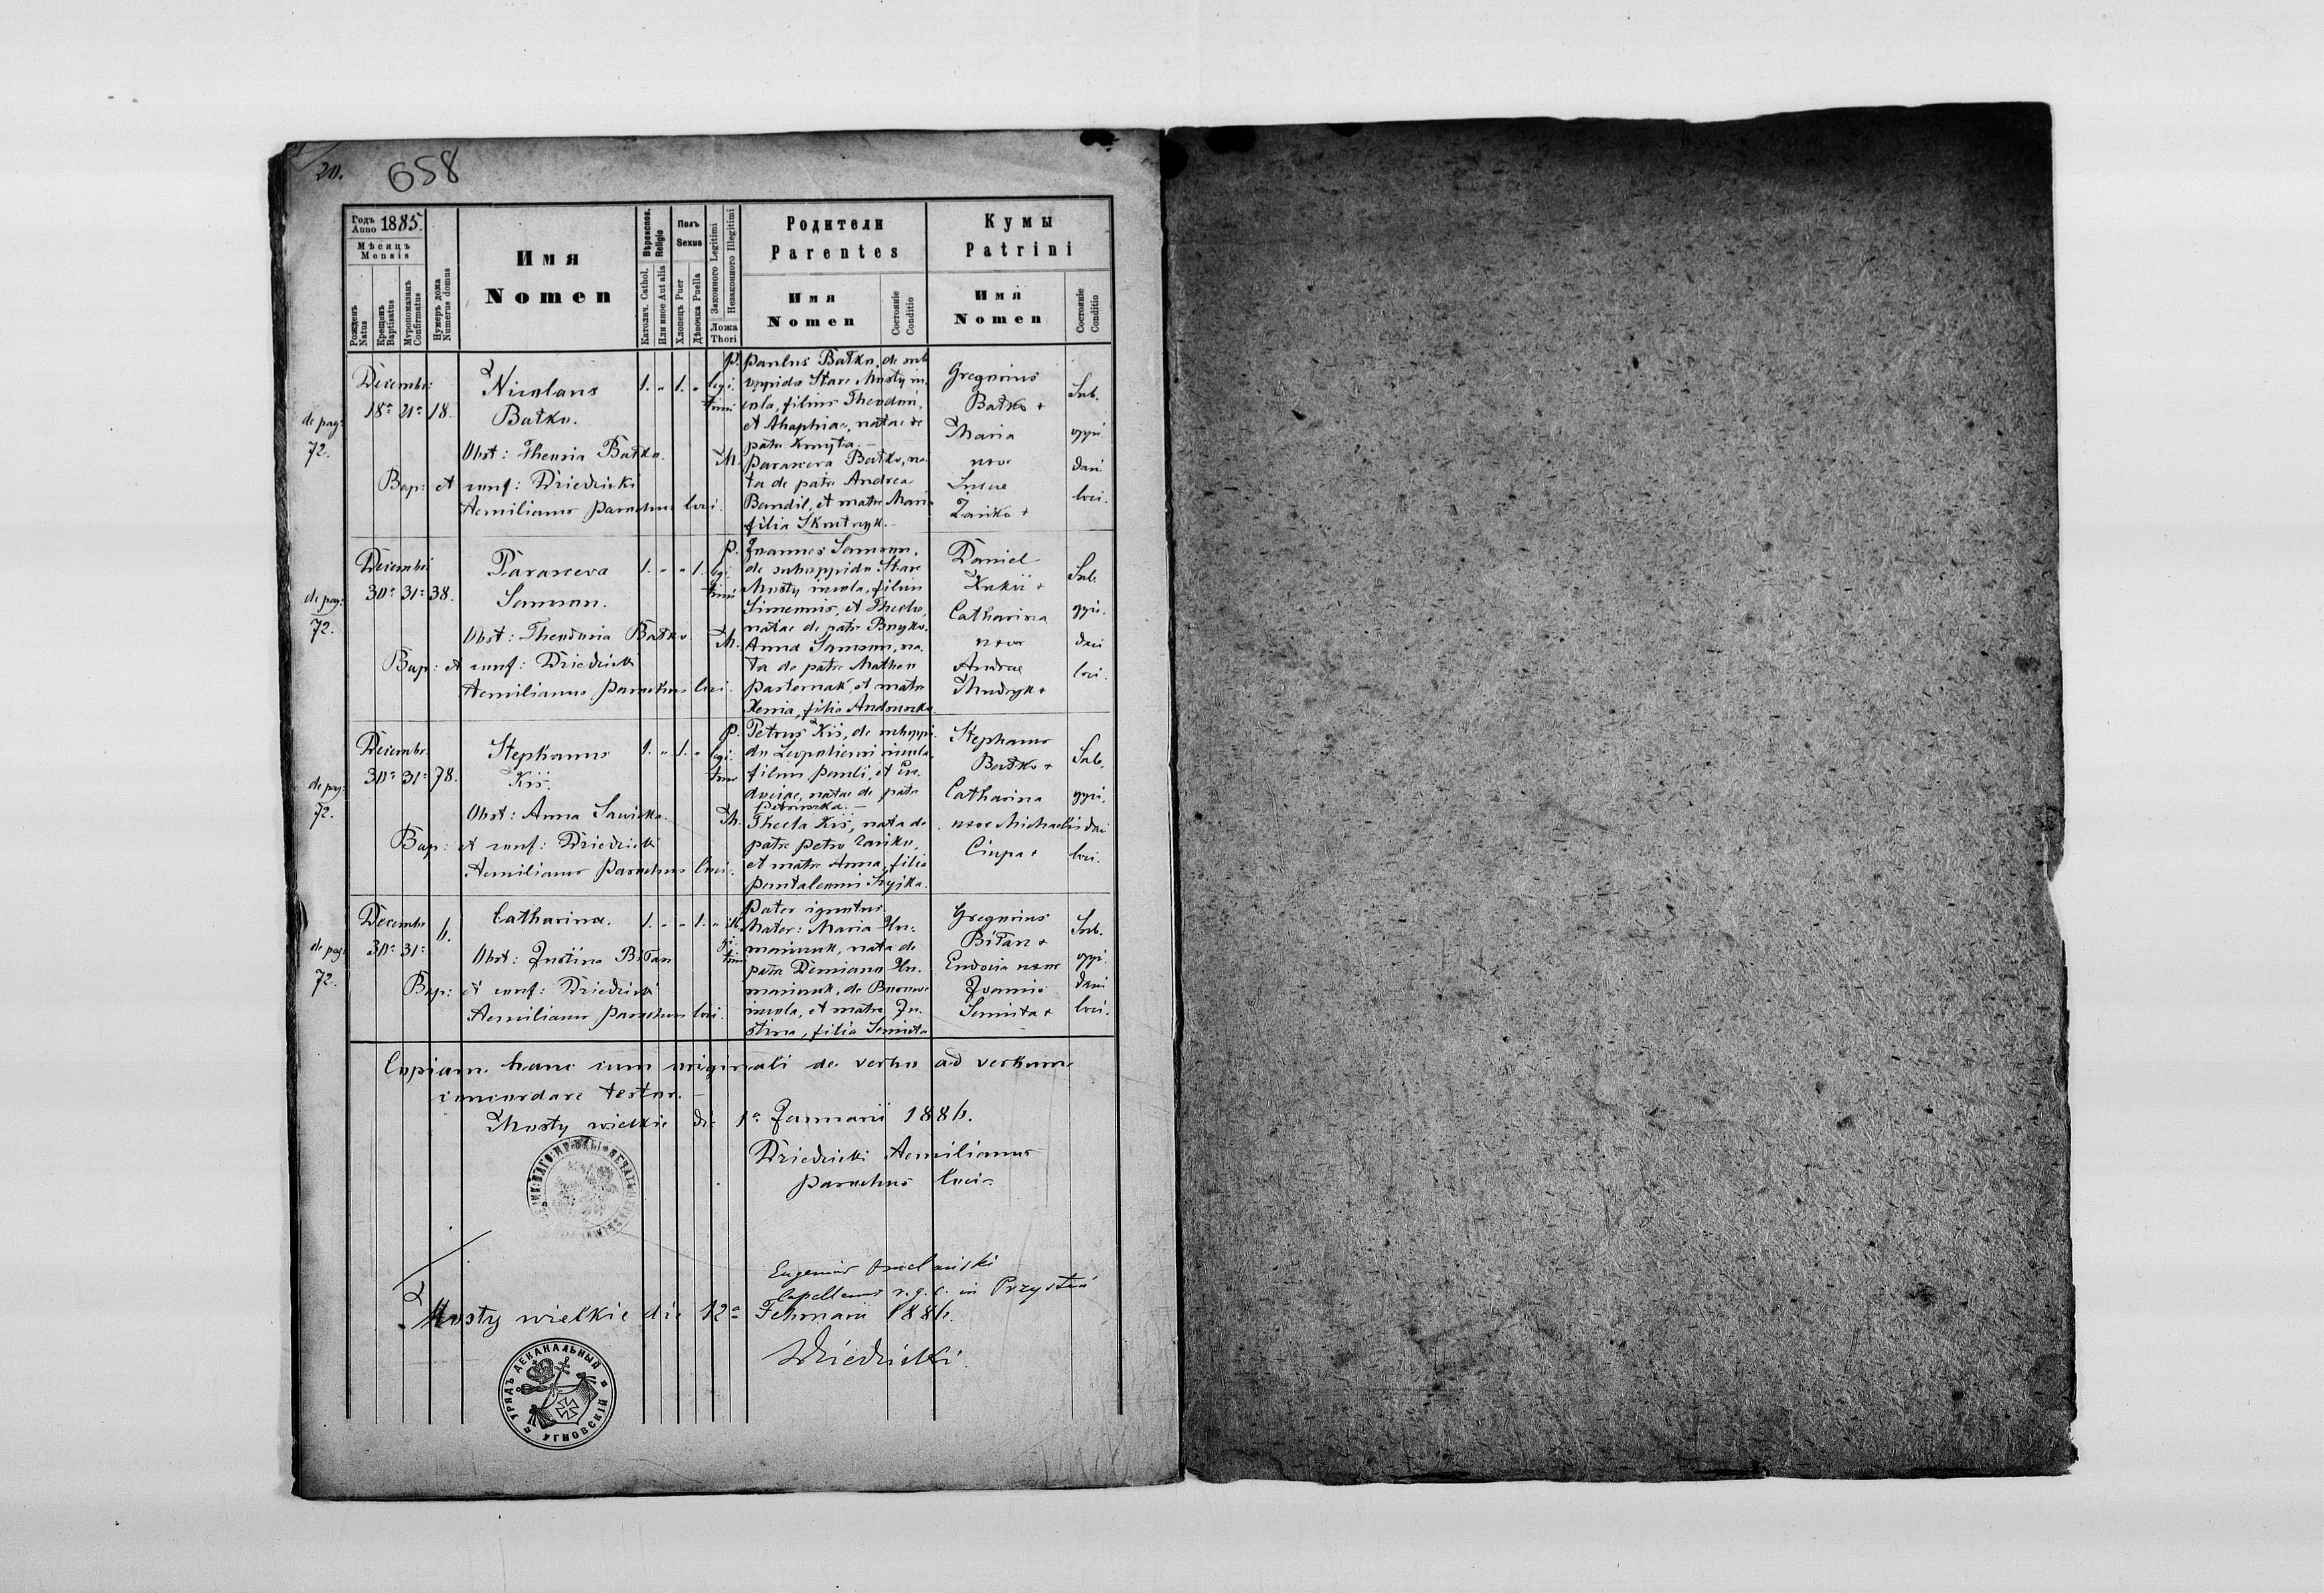 20.
658
Годъ Anno 1885.
Мѣсяцъ
Mensis
Рожденъ Natus
Крещенъ Baptisatus
Мѵропомазанъ Confirmatus
Нумеръ дома Numerus domus
Имя
Nomen
Вѣроиспов. Religio
Католич. Cathol.
Или иное Aut alia
Полъ
Sexus
Хлопецъ Puer
Дѣвочка Puella
Законного Legitimi
Незаконного Illegitimi
Ложа
Thori
Родители
Parentes
Имя
Nomen
Состояніе
Conditio
Кумы
Patrini
Имя
Nomen
Состояніе
Conditio
de pag:
72.
Decembri
18a 21a 18.
Nicolaus
Bałko.
Obst: Bałko.
Bap: et conf: Dziedzicki
Aemilianus parochus loci.
1. " 1. "
legi-
timi
P. paulus Bałko, de sub
oppido Stare Mosty in-
cola, filius Theodori,
et Ahaphiae, natae de
patre Kmyta.—
M. parasceva Bałko, na-
ta de patre Andrea
Bandil, et matre Maria
filia Skrutnyk.—
Gregorius
Bałko +
Maria
uxor
Lucae
Zańko +
Sub-
oppi-
dani
loci.
de pag:
72.
Decembri
30a 31a 38.
Parasceva
Samson.
Obst: Theodosia Bałko
Bap: et conf: Dziedzicki
Aemilianus parochus loci.
1. " " 1.
legi-
timi
P. Joannes Samson,
de suboppido Stare
Mosty incola, filius
Simeonis, et Theclae,
natae de patre Buyko.
M. Anna Samson, na-
ta de patre Matheo
pasternak, et matre
Xenia, filia
Daniel
+
Catharina
uxor
Andreae
Mudryk +
Sub-
oppi-
dani
loci.
de pag:
72.
Decembri
30a 31a 78.
Stephanus
Kiś.
Obst: Anna Sawicka.
Bap: et conf: Dziedzicki
Aemilianus parochus loci.
1. " 1. "
legi-
timi
P. Petrus Kiś, de suboppi-
do incola,
filius pauli, et Eu-
dociae, natae de patre
M. Thecla Kiś, nata de
patre petro Zańko,
et matre Anna, filia
pantaleonis
Stephanus
Bałko +
Catharina
uxor Michaelis
Ciupa +
Sub-
oppi-
dani
loci.
de pag:
72.
Decembri
30a 31a 6.
Catharina.
Obst: Justina Biłan
Bap: et conf: Dziedzicki
Aemilianus parochus loci.
1. " " 1. "
ille-
gi-
timi
pater ignotus
Mater: Maria Hu-
maniuk, nata de
patre Demiano Hu-
maniuk, de
incola, et matre Ju-
stina, filia Semiuta
Gregorius
Biłan +
Eudocia uxor
Joannis
Semiuta +
Sub-
oppi-
dani
loci.
Copiam hanc cum originali de verbo ad verbum
concordare testor.—
Mosty wielkie die 1a Januarii 1886.
Dziedzicki Aemilianus
parochus loci.
Eugenius
Capellanus r. g. c. in Przystań
Mosty wielkie die 12a Februarii 1886.
Dziedzicki
УРЯДЪ ДЕКАНАЛЬНЫЙ
УГНОВСКІЙ